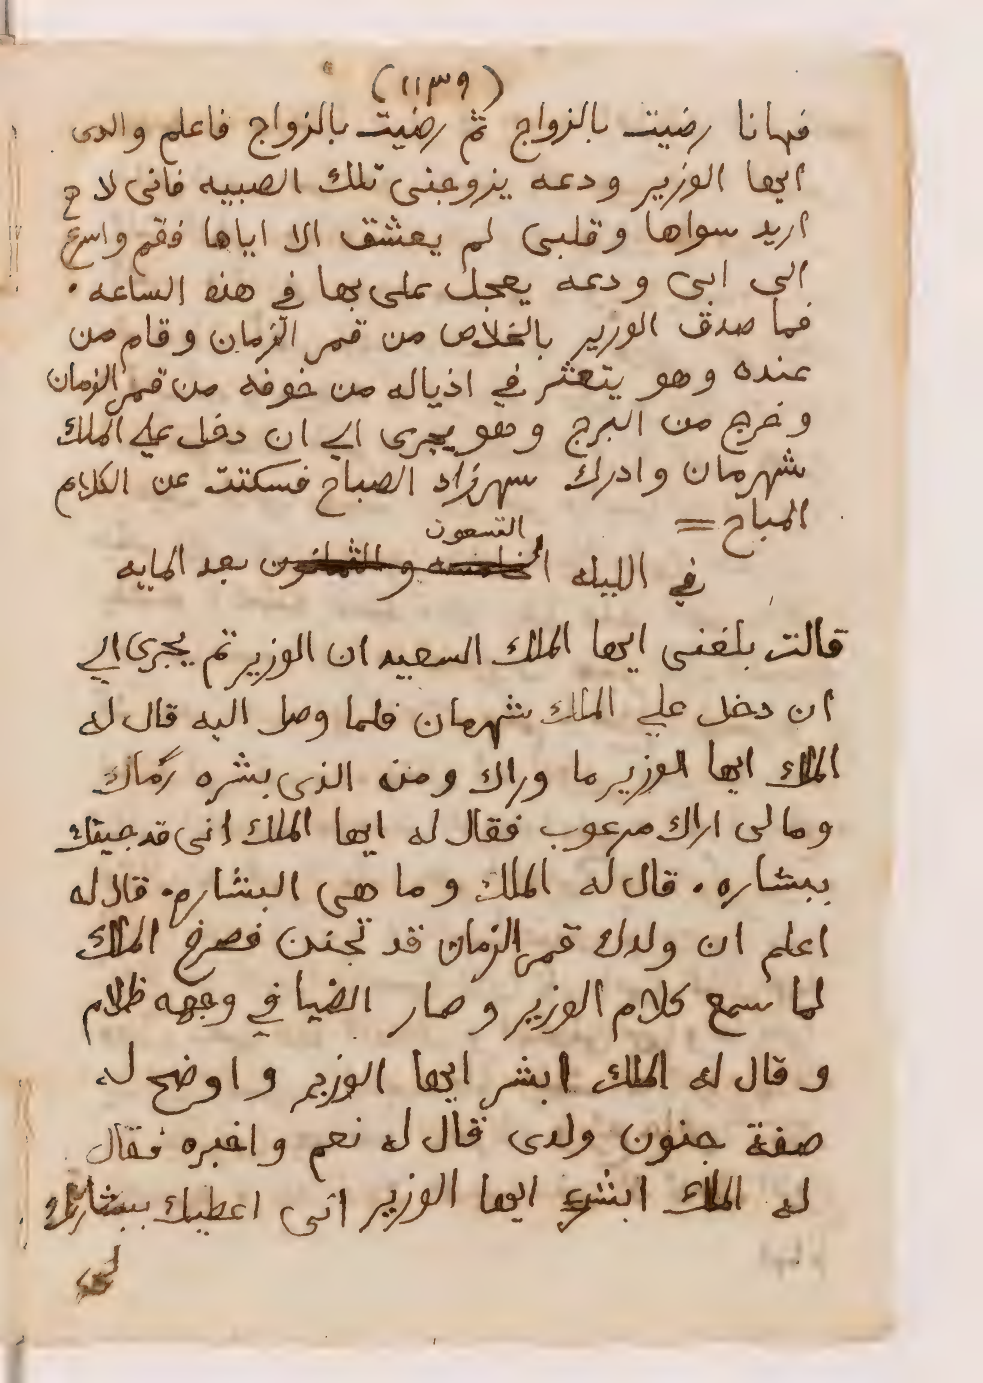 (١١٣٩)
فهانا رضيت بالزواج ثم رضيت بالزواج فاعلم والدى
ايها الوزير ودعه يزوجنى تلك الصبيه فانى لا
اريد سواها وقلبى لم يعشق الا اياها فقم واسرع
الى ابى ودعه يعجل على بها في هذه الساعه .
فما صدق الوزير بالخلاص من قمر الزمان وقام من
عنده وهو يتعثر في اذياله من خوفه من قمر الزمان
وخرج من البرج وهو يجرى الي ان دخل علي الملك
شهرمان وادرك سهرزاد الصباح فسكتت عن الكلام
المباح =
التسعون
في الليله الخامسه والثمانون بعد المايه
قالت بلغنى ايها الملك السعيد ان الوزير تم يجرى الي
ان دخل علي الملك شهرمان فلما وصل اليه قال له
الملك ايها الوزير ما وراك ومن الذى بشره رماك
ومالى اراك مرعوب فقال له ايها الملك انى قد جيتك
ببشاره . قال له الملك وما هى البشاره . قال له
اعلم ان ولدك قمر الزمان قد تجنن فصرخ الملك
لما سمع كلام الوزير وصار الضيا في وجهه ظلام
وقال له الملك ابشر ايها الوزير واوضح له
صفة جنون ولدى قال له نعم واخبره فقال
له الملك ابشر ايها الوزير انى اعطيك ببشارتك